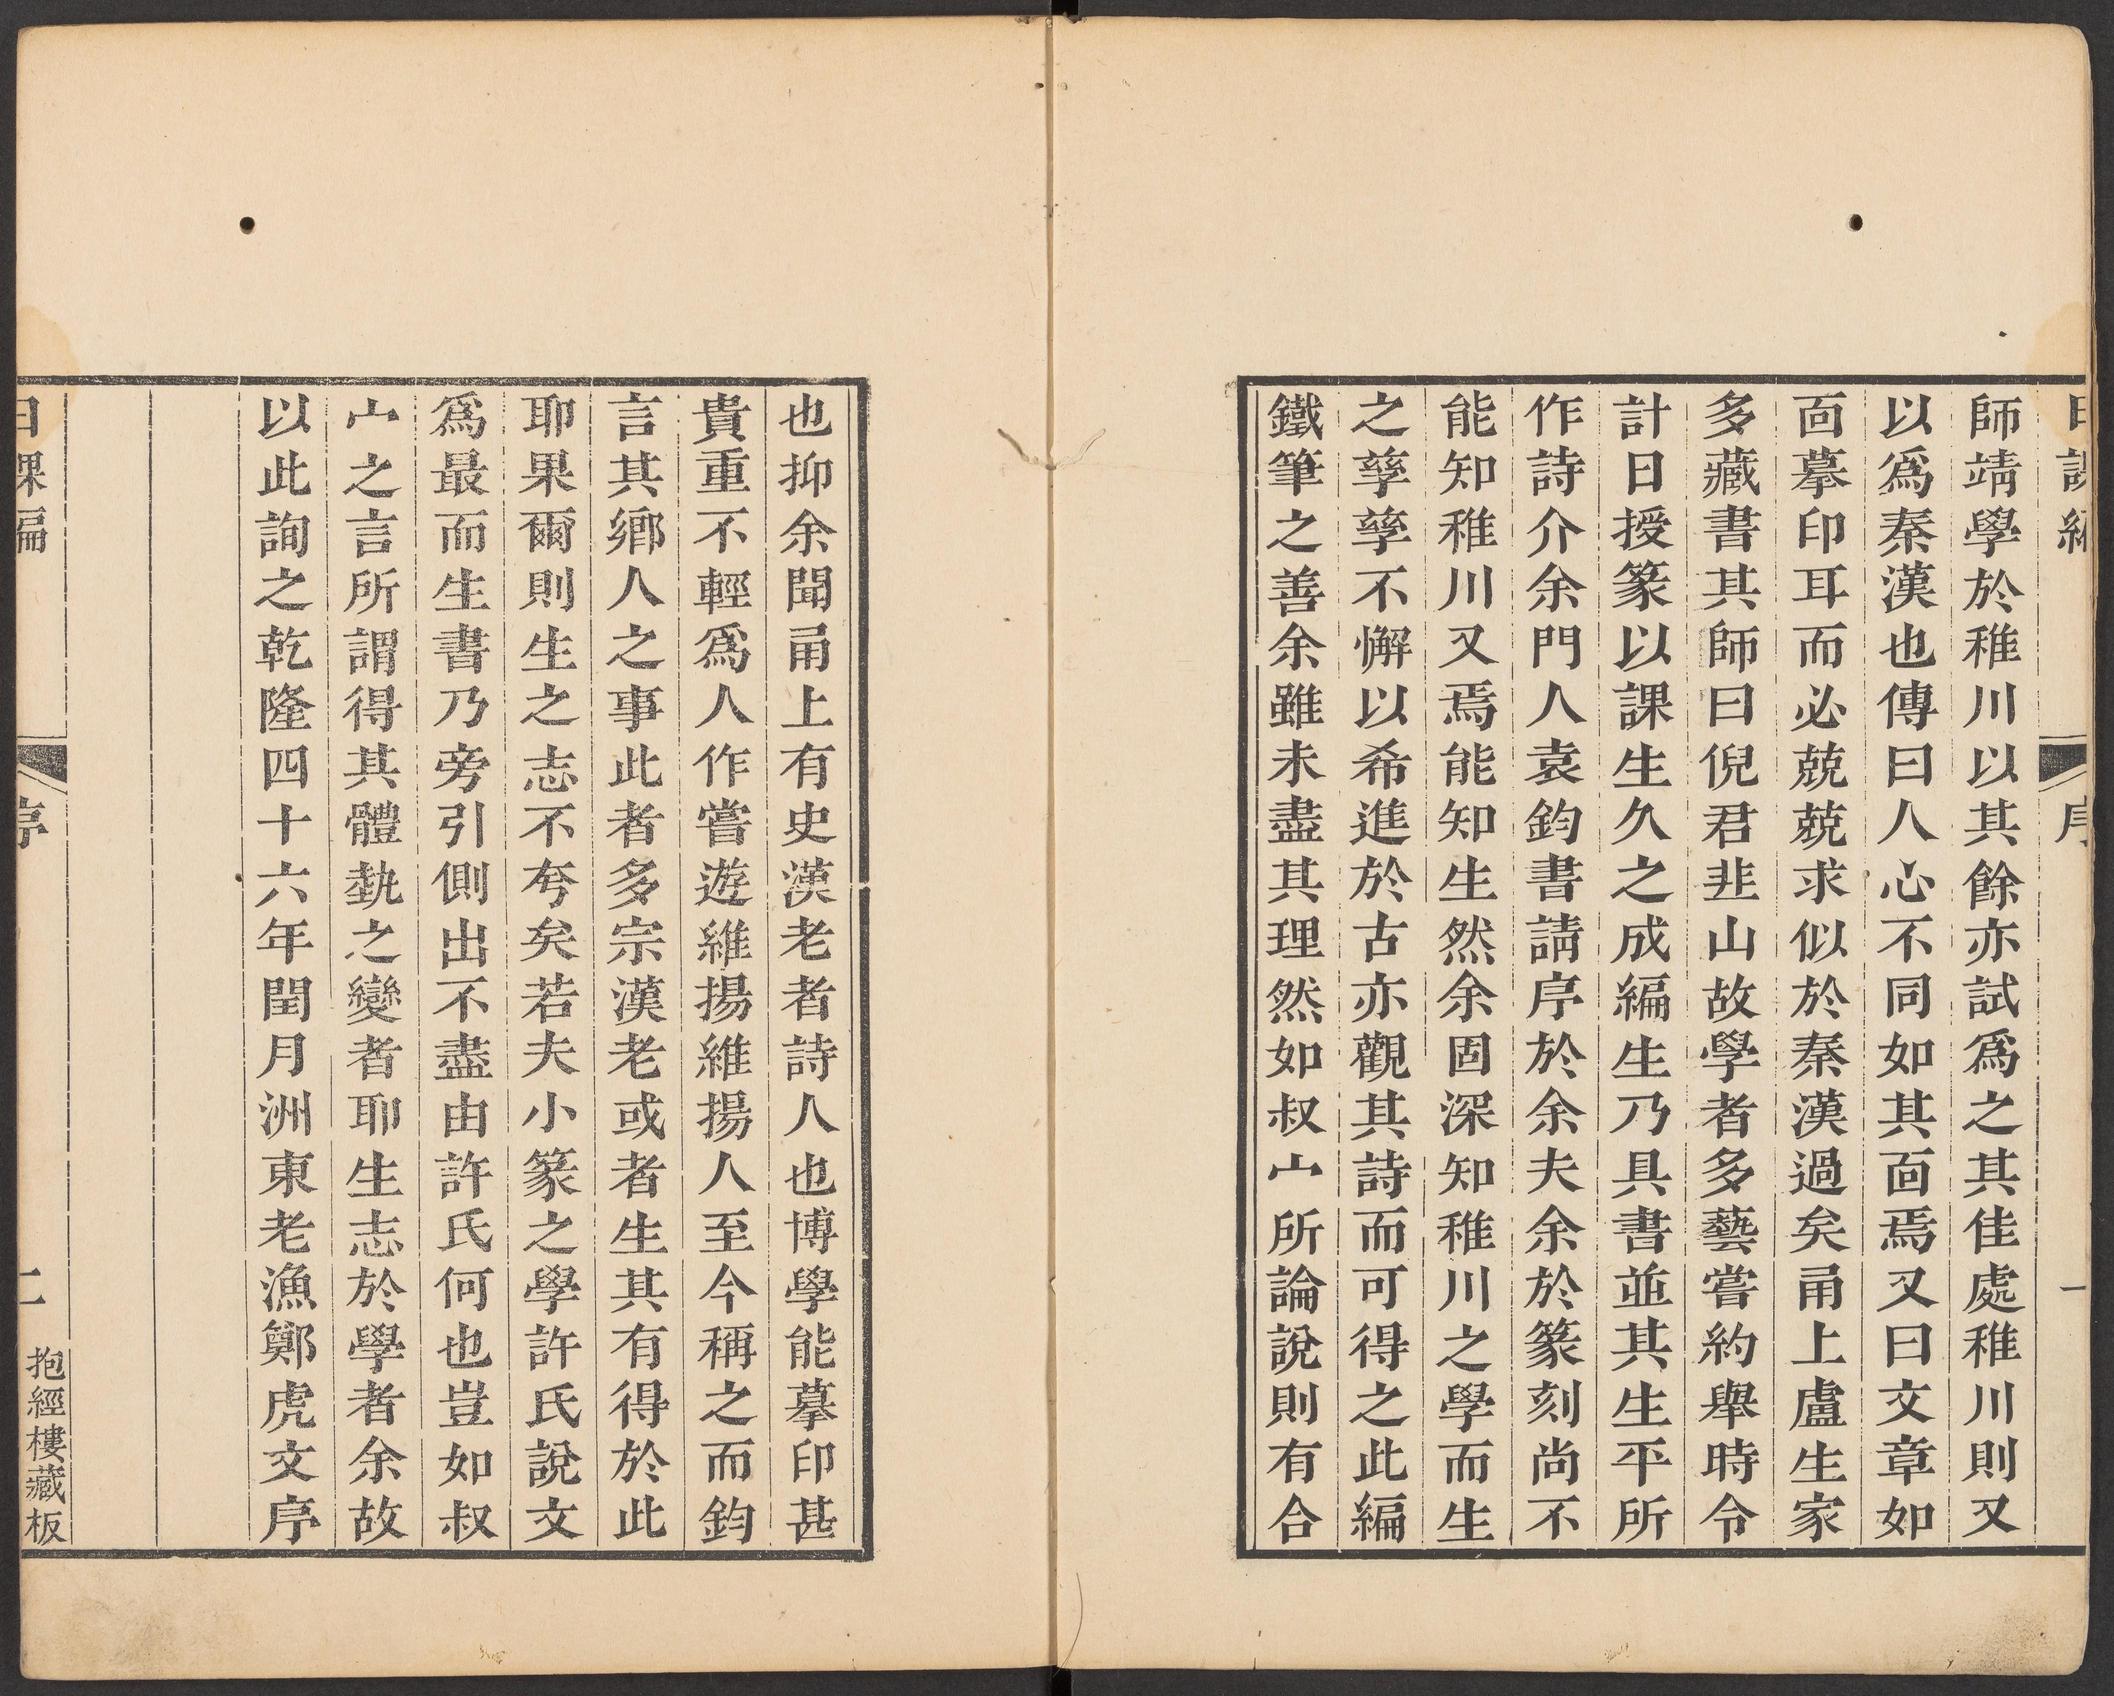 日課編
序
一
師靖學於稚川以其餘亦試爲之其佳處稚川則又
以爲秦漢也傳曰人心不同如其面焉又曰文章如
面摹印耳而必兢兢求似於秦漢過矣甬上盧生家
多藏書其師曰倪君韭山故學者多藝嘗約舉時令
計日授篆以課生久之成編生乃具書並其生平所
作詩介余門人袁鈞書請序於余夫余於篆刻尚不
能知稚川又焉能知生然余固深知稚川之學而生
之孳孳不懈以希進於古亦觀其詩而可得之此編
鐵筆之善余雖未盡其理然如叔山所論說則有合
也抑余聞甬上有史漢老者詩人也博學能摹印甚
貴重不輕爲人作嘗遊維揚維揚人至今稱之而鈞
言其鄉人之事此者多宗漢老或者生其有得於此
耶果爾則生之志不夸矣若夫小篆之學許氏說文
爲最而生書乃旁引側出不盡由許氏何也豈如叔
山之言所謂得其體埶之變者耶生志於學者余故
以此詢之乾隆四十六年閏月洲東老漁鄭虎文序
日課編
序
二
抱經樓藏板